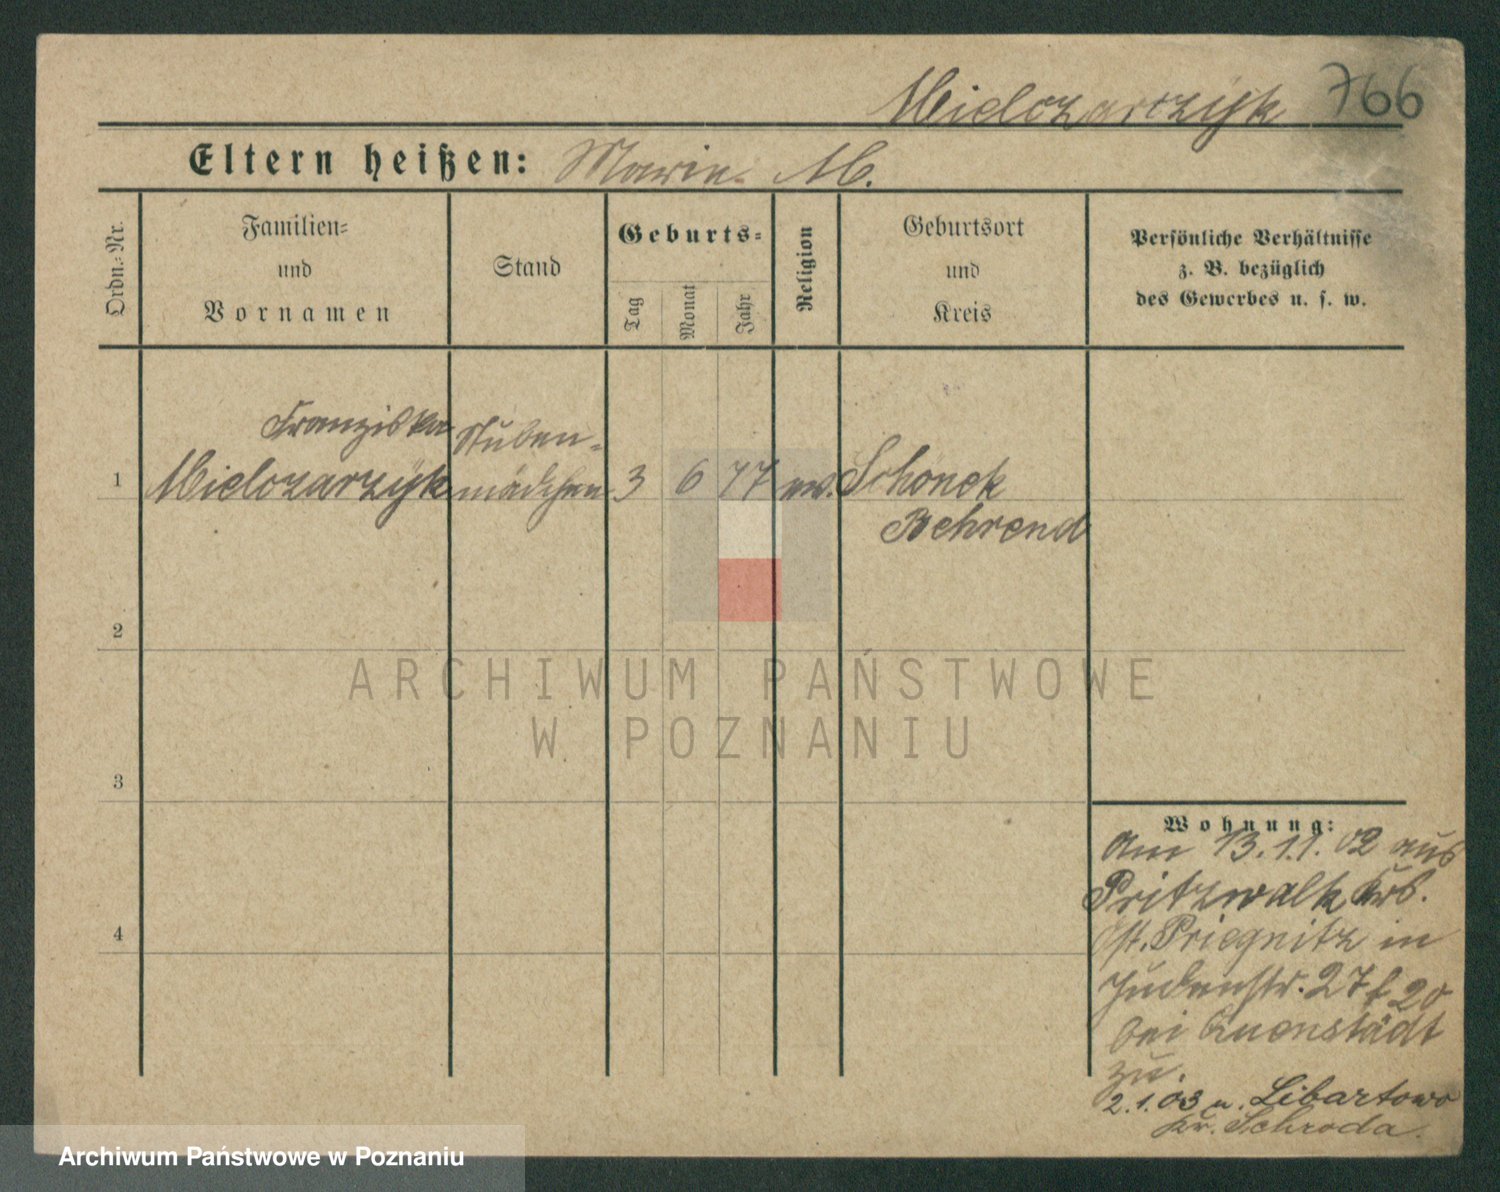 Mielczarczyk 766
Eltern heißen: Marie M.
Ordn.-Nr.
Familien-
und
Vornamen
Stand
Geburts-
Tag
Monat
Jahr
Religion
Geburtsort
und
Kreis
Persönliche Verhältnisse
z. B. bezüglich
des Gewerbes u. s. w.
Franziska Stuben-
1 Mielczarzyk mädchen 3 6 77 ev. Schöneck
Behrend
2
3
4
Wohnung:
Am 13.11.02 aus
Pritzwalk Krs.
Ost. Priegnitz in
Judenstr. 27 f 20
bei Quenstädt
zu.
2.1.03 n. Libartowo
Kr. Schroda.
ARCHIWUM PAŃSTWOWE
W POZNANIU
Archiwum Państwowe w Poznaniu